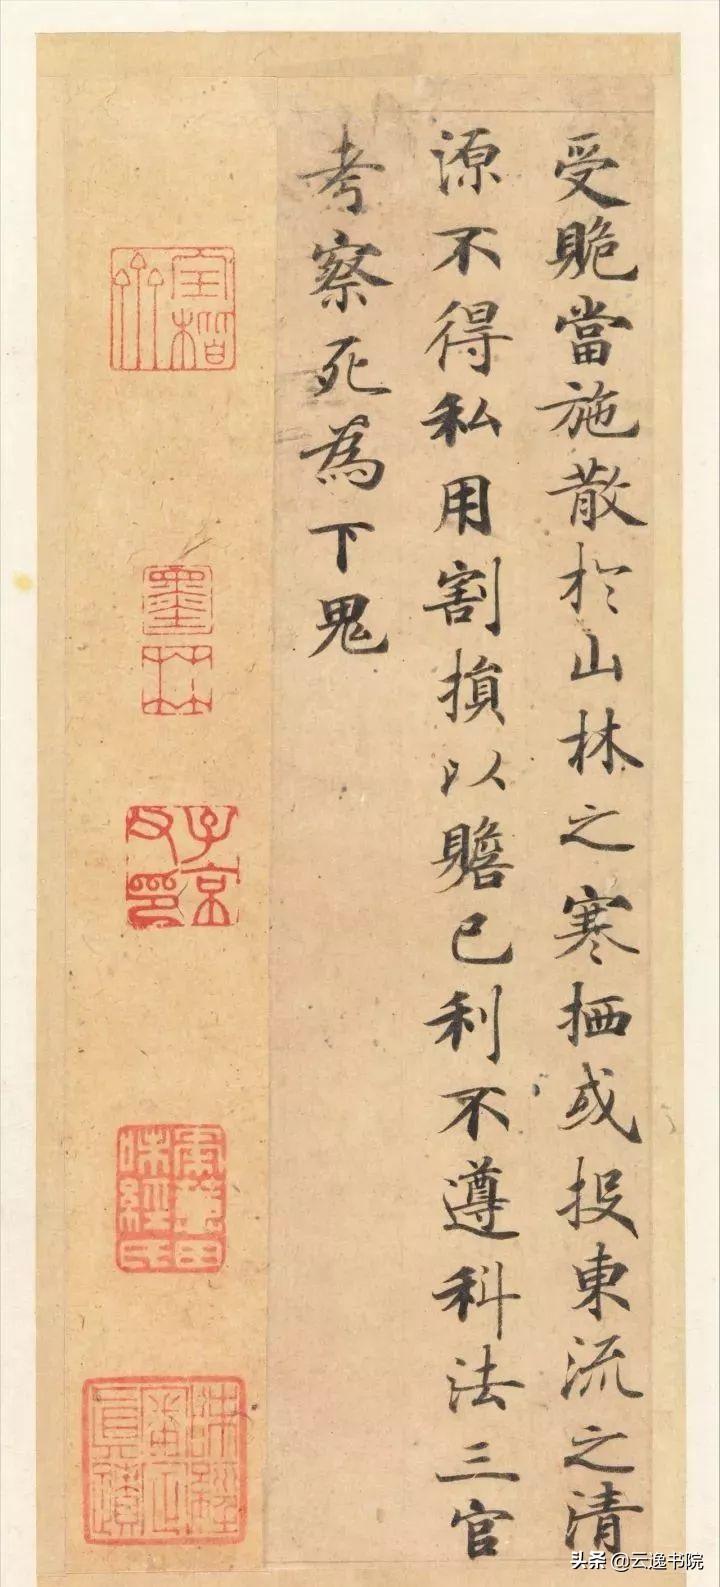 受賄當施散於山林之寒栖或投東流之清
源不得私用割損以贍己利不遵科法三官
考察死為下鬼
墨林
子京父印
頭条 @云逸书院